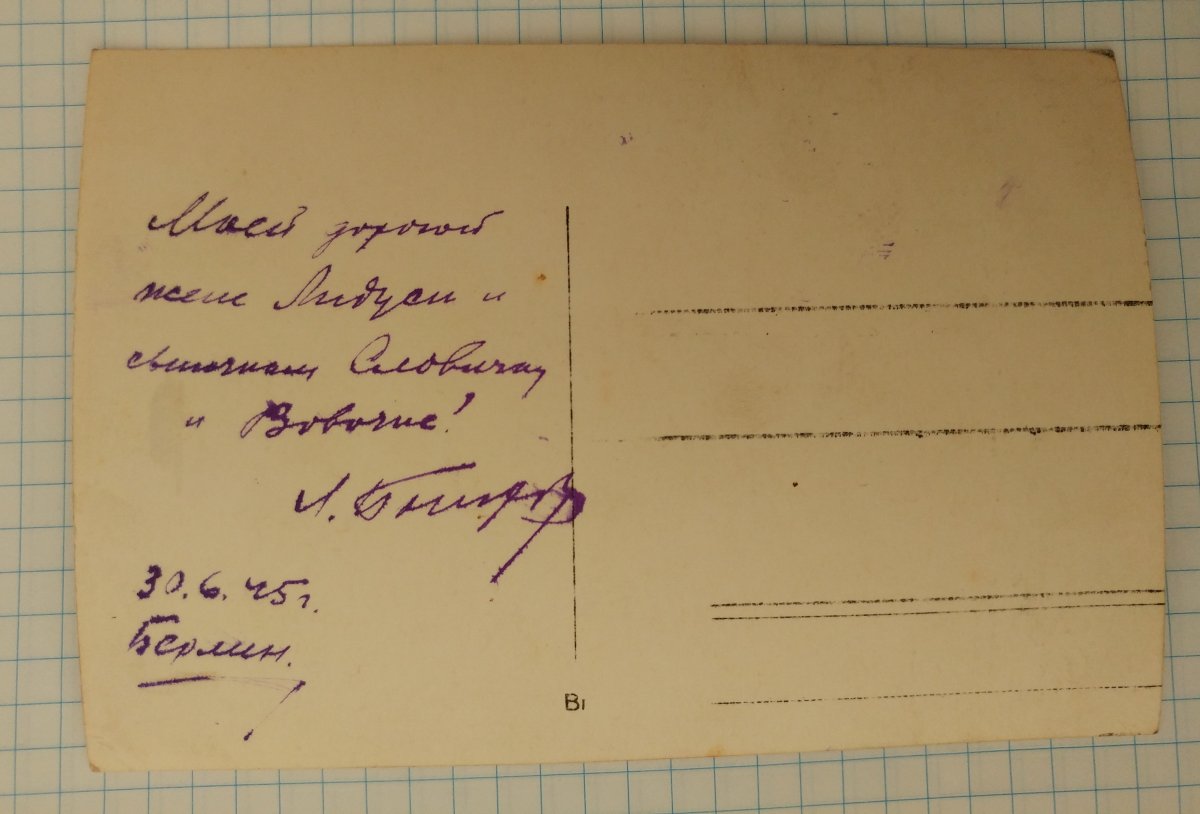 Моей дорогой
жене Лидуси и
сыночкам Славичку
и Вовочке!
30.6.45 г.
Берлин.
B1